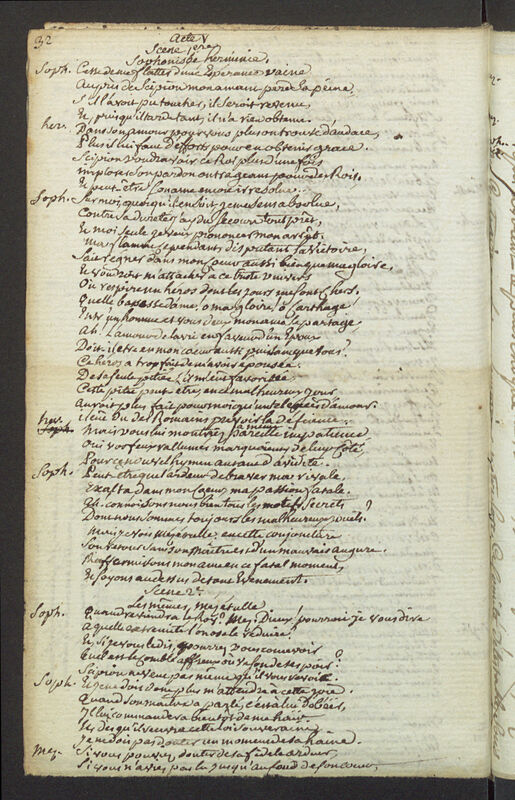 32
Acte V
Scene 1ere
Sophonisbe herminie.
Soph. Cesse de me flatter d'une Esperance vaine
Auprés de Scipion mon amant perd sa peine.
S'il l'avoit pu toucher, il seroit revenu,
Et, puis qu'il tarde tant, il n'a rien obtenu.
her. Dans son amour pour vous plus on trouve d'audace,
Plus il lui faut d'efforts pour en obtenir grace.
Scipion voudra voir ce Roi plus d'une fois
implorer son pardon outrageant pour des Rois,
Et peut-etre son ame encore irresolue.
Soph. Sur moi, quoiqu'il en soit, je me sens absolue,
Contre sa dureté j'ai du secours tout prêt,
Et moi seule je vais prononcer mon arrêt.
Ma flamme cependant, disputant la victoire,
Sait regner dans mon coeur aussi bien que ma gloire,
Et voudroit m'attacher a ce triste univers
Où respire un heros dont les jours me sont chers.
Quelle bassesse d'ame! o ma gloire! ô Carthage!
Entr'un homme et vous deux mon ame se partage
Ah! L'amour de la vie en faveur d'un Epoux
Doit-il etre en mon coeur aussi puissant que vous?
Ce heros a trop fait de m'avoir epousée.
De sa seule pitié
Cette pitié peut-etre, en ce malheureux jour
Auroit plus fait pour moi qu'un d'amour.
her. des Romains
Mais vous lui montrez pareille impatience
Oui vos feux rallumés
Pour ce nouvel hymen autant d'avidité.
Soph. Peut-etre qu'ardeur de braver ma rivale,
Exalta dans mon coeur ma passion fatale.
Ah! connoissons nous bien tous les motifs secrets?
Donc nous sommes toujours les malheureux jouets.
Mais je vois Mezetulle, en cette conjoncture
Son retour sans son maitre est d'un mauvais augure.
Raffermissons mon ame en ce fatal moment,
Et soyons au dessus de tout Evenement.
Scene 2e
Les mêmes, Mezetulle
Soph. Quand reviendra le Roi?
Mez. Dieux! pourrai-je vous dire
A quelle extremité l'on ose le reduire?
Et, si je vous le dis, pourrez vous concevoir
Quel est le comble affreux où se fonde
Scipion ne veut pas même qu'il vous revoie.
Soph. Et je ne dois donc plus m'attendre à cette joie.
Quand son maitre a parlé, c'est à lui d'obéir,
Il lui commandera bientôt de me hair.
Et dès qu'il
Je ne dois pas douter un moment de sa haine.
Mez. Si vous pouvez douter de sa fidele ardeur,
Si vous n'avez pas lu jusqu'au fond de son coeur,